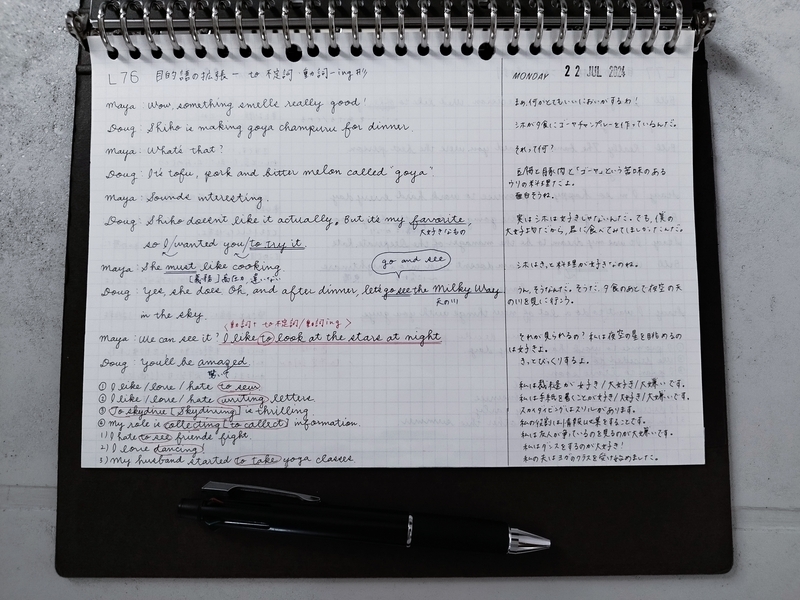 L76 目的語の拡張 - to 不定詞・動詞-ing形
MONDAY 22 JUL 2024
Maya: Wow, something smells really good!
まあ、何かとてもいいにおいがするわ!
Doug: Shiho is making goya champuru for dinner.
シホが夕食にゴーヤチャンプルーを作っているんだ。
Maya: What's that?
それって何?
Doug: It's tofu, pork and bitter melon called "goya".
豆腐と豚肉と「ゴーヤ」という苦味のある
ウリの料理だよ。
Maya: Sounds interesting.
面白そうね。
Doug: Shiho doesn't like it actually. But it's my favorite,
大好きなもの
実はシホは好きじゃないんだ。でも、僕の
大好物だから、君に食べてみてほしかったんだ。
so I wanted you to try it.
Maya: She must like cooking.
シホはきっと料理が好きなのね。
go and see
Doug: Yes, she does. Oh, and after dinner, let's go see the Milky Way
天の川
うん、そうなんだ。そうだ、夕食のあとで夜空の天
の川を見に行こう。
in the sky.
<動詞+to不定詞/動詞ing>
Maya: We can see it? I like to look at the stars at night.
それが見られるの? 私は夜空の星を眺めるの
は好きよ。
Doug: You'll be amazed.
きっとびっくりするよ。
① I like / love / hate to sew
私は裁縫が好き/大好き/大嫌いです。
② I like / love / hate writing letters.
私は手紙を書くことが好き/大好き/大嫌いです。
③ To skydive [Skydiving] is thrilling
スカイダイビングはスリルがあります。
④ My role is collecting [to collect] information.
私の役割は情報収集をすることです。
1) I hate to see friends fight
私は友人が争っているのを見るのが大嫌いです。
2) I love dancing!
私はダンスをするのが大好き!
3) My husband started to take yoga classes.
私の夫はヨガのクラスを受け始めました。